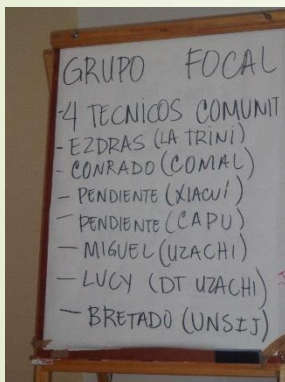 GRUPO FOCAL
-4 TECNICOS COMUNIT
- EZDRAS (LA TRINI)
- CONRADO (COMAL)
- PENDIENTE (XIACUÍ)
- PENDIENTE (CAPU)
- MIGUEL (UZACHI)
- LUCY (DT UZACHI)
- BRETADO (UNSIJ)